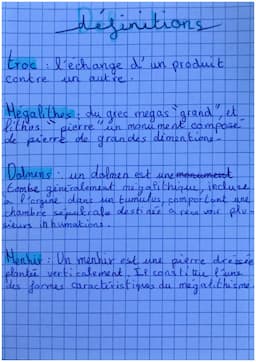 définitions
troc : l'échange d'un produit
contre un autre.
Mégalithes : du grec megas "grand", et
lithos "pierre" un monument composé
de pierre de grandes dimentions.
Dolmens : un dolmen est une monument
tombe généralement mégalithique, incluse
à l'orgine dans un tumulus, comportant une
chambre sépulcrale destinée a recevoir plu-
sieurs inhumations.
Menhir : Un menhir est une pierre dressée
plantée verticalement. Il constitue l'une
des formes caractéristiques du mégalithisme.